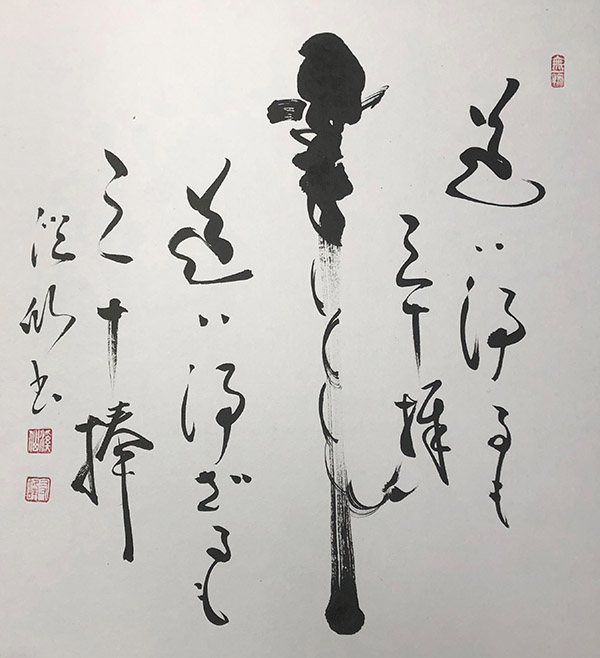 道い得るも
三十棒
道い得ざるも
三十棒